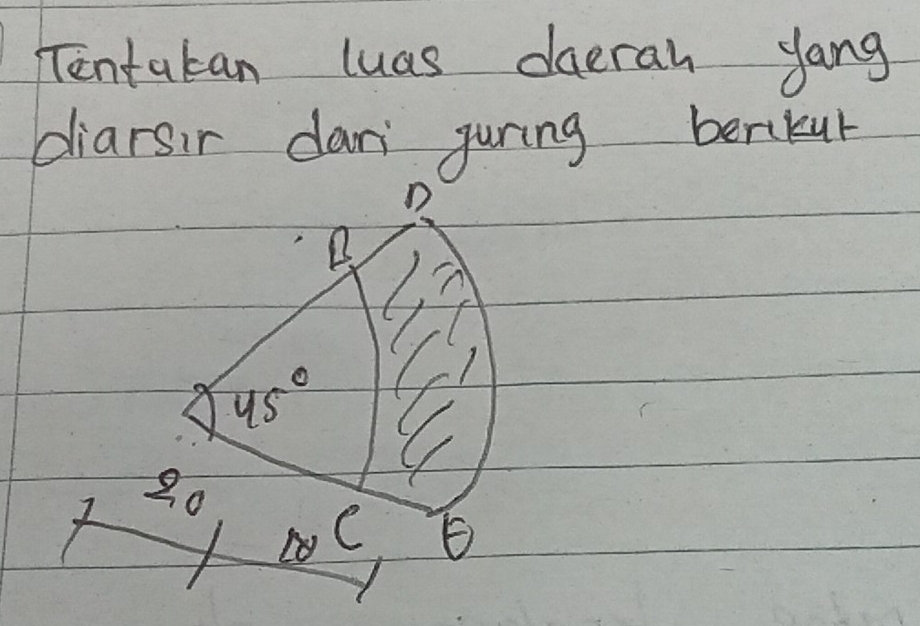 Tentukan luas daerah yang
diarsir dari juring berikut
D
B
45°
20
C
E